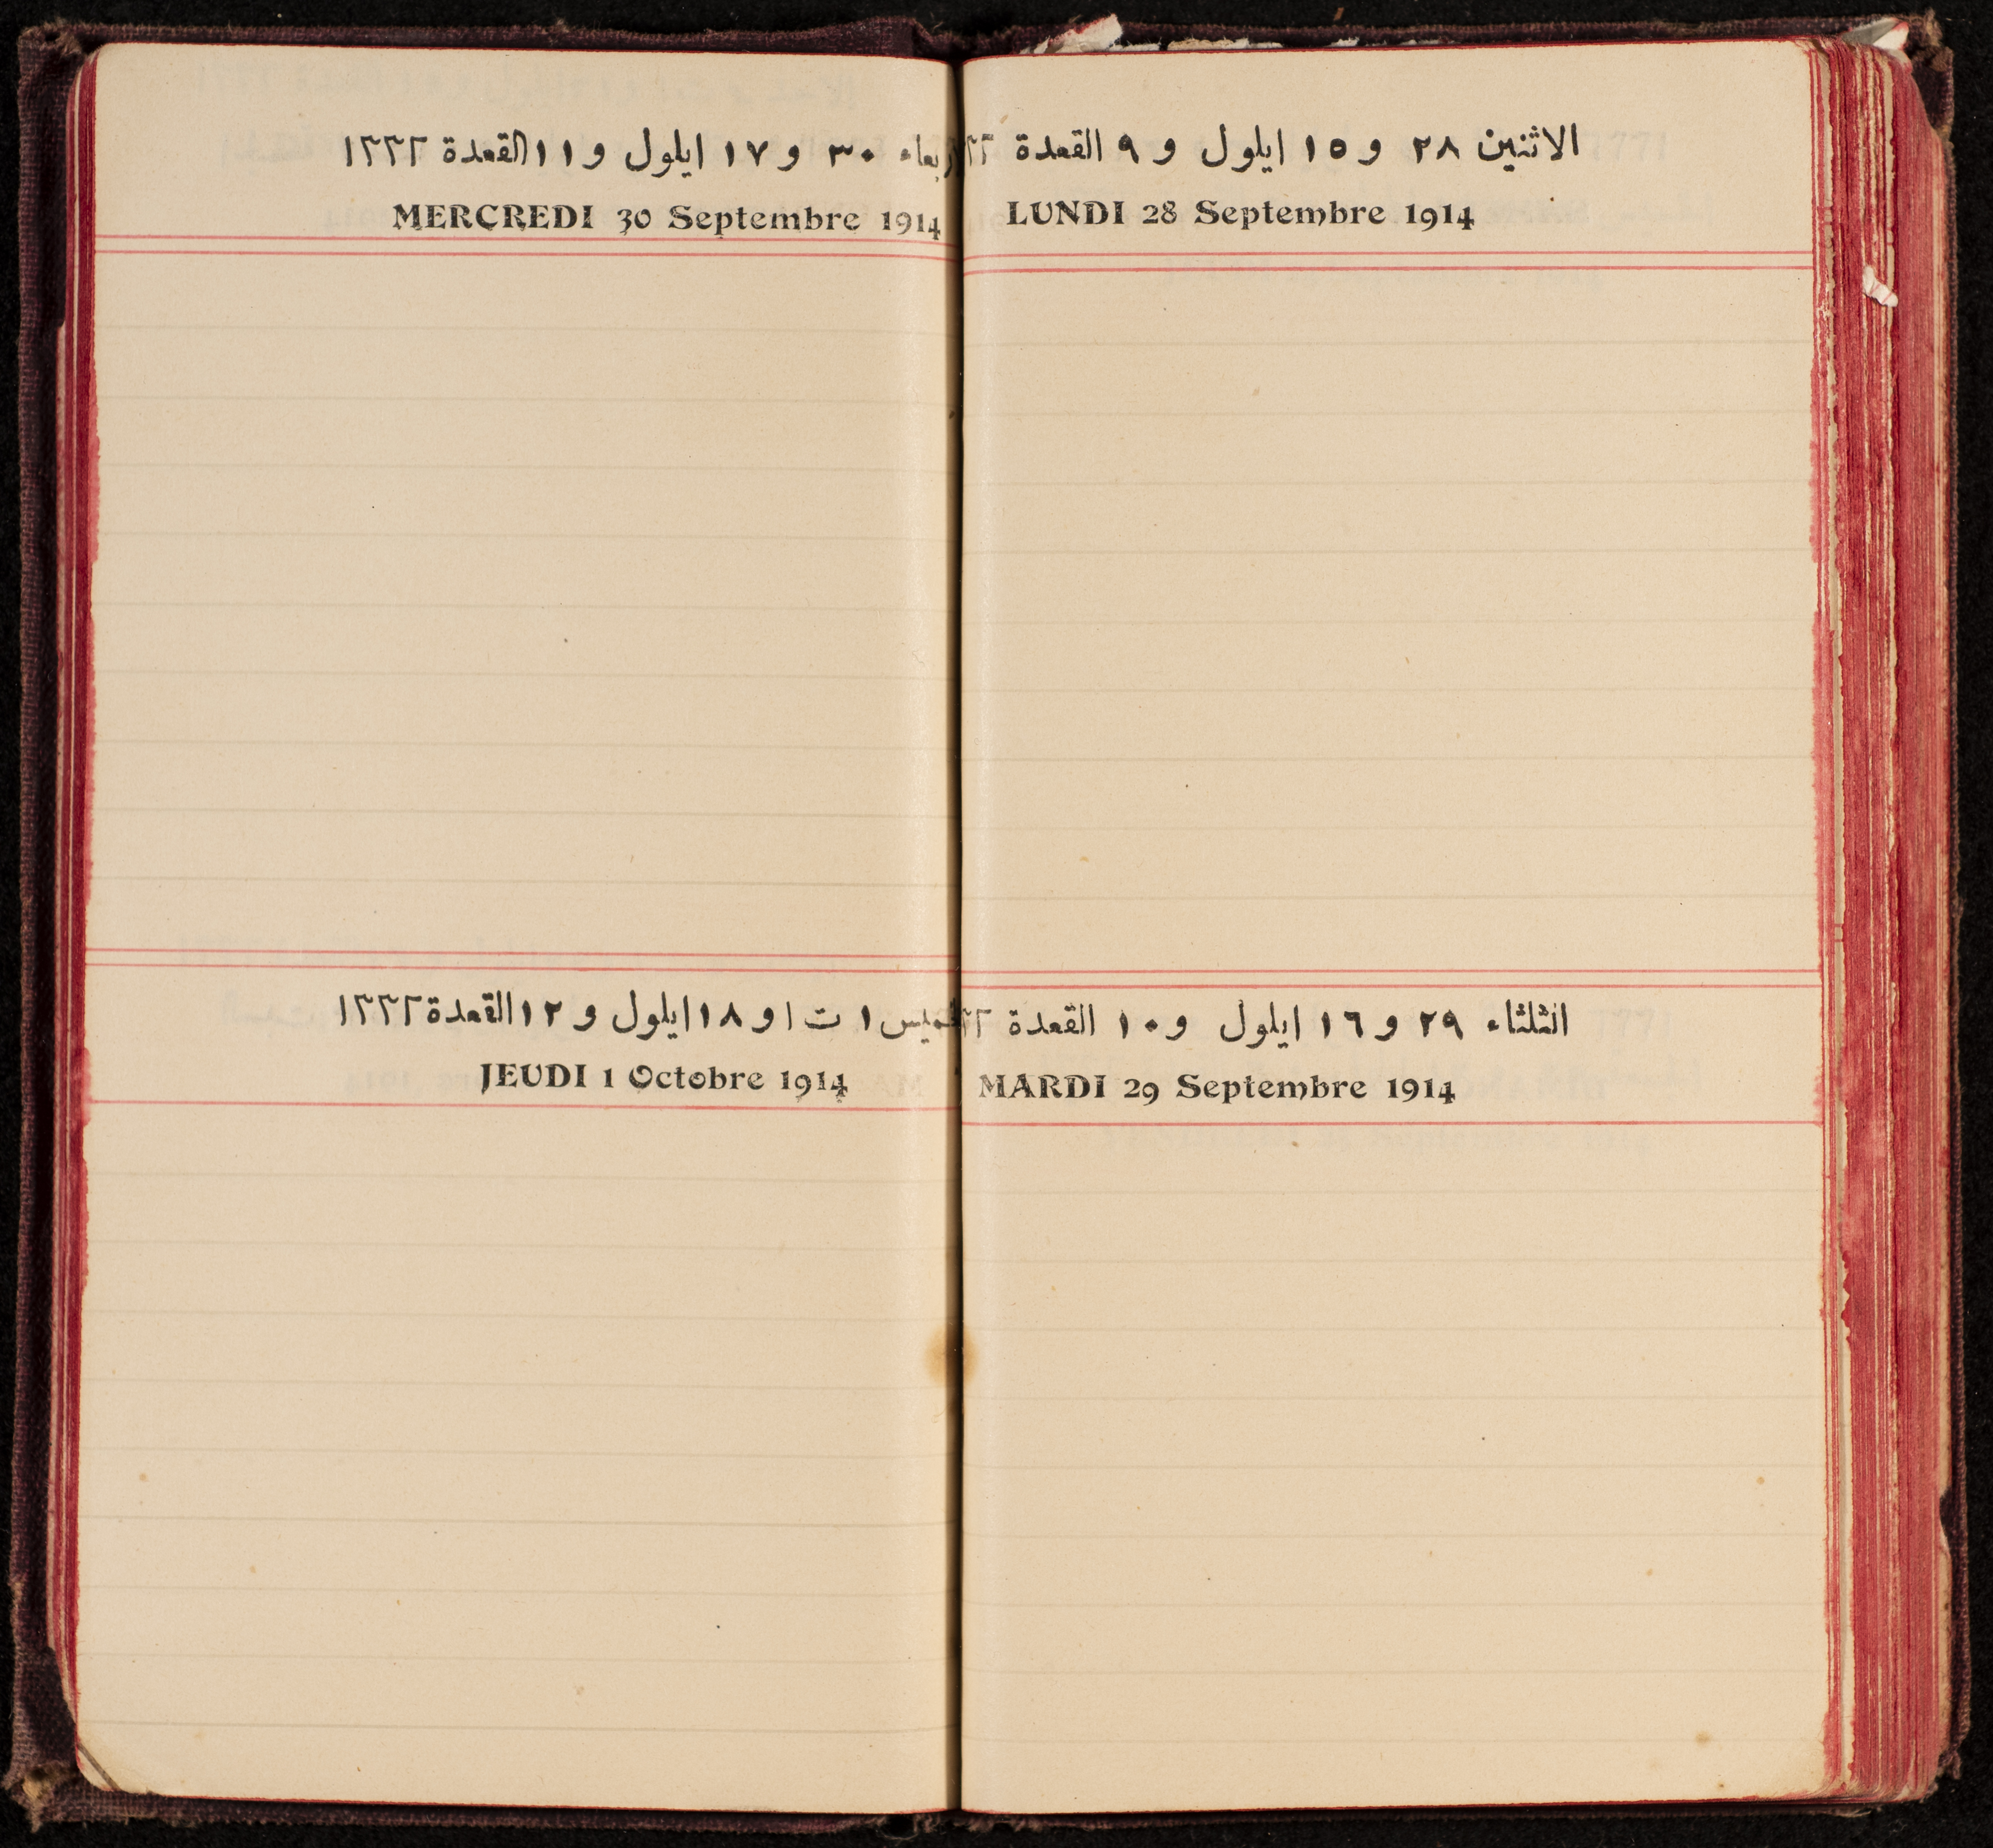 الاثنين ٢٨ و ١٥ ايلول و ٩ القعدة
LUNDI 28 Septembre 1914
الثلثاء ٢٩ و ١٦ ايلول و ١٠ القعدة
MARDI 29 Septembre 1914
٣٠ و ١٧ ايلول و ١١ القعدة ١٣٣٢
MERCREDI 30 Septembre 1914
١ ت ١ و ١٨ ايلول و ١٢ القعدة ١٣٣٢
JEUDI 1 Octobre 1914